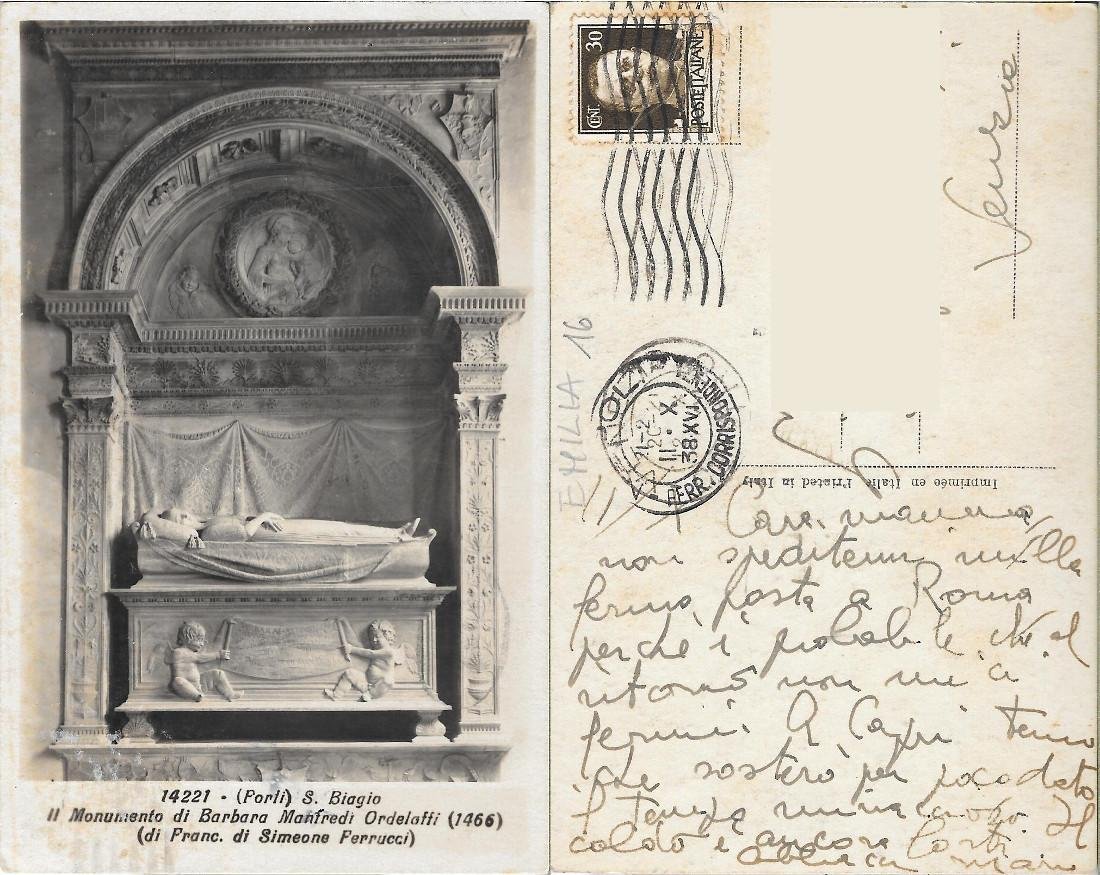 14221 - (Forlì) S. Biagio
Il Monumento di Barbara Manfredi Ordelaffi (1466)
(di Franc. di Simeone Ferrucci)
CENT. 30
POSTE ITALIANE
EMILIA 16
VENEZIA
CORRISPONDENZE
FERR.
11. X
38 XVI
Imprimée en Italie Printed in Italy
Cara mamma
non speditemi nulla
fermo posta a Roma
perchè è probabile che al
ritorno non mi ci
fermi. A Capri temo
che sosterò per poco dato
tempo
caldo è ancora